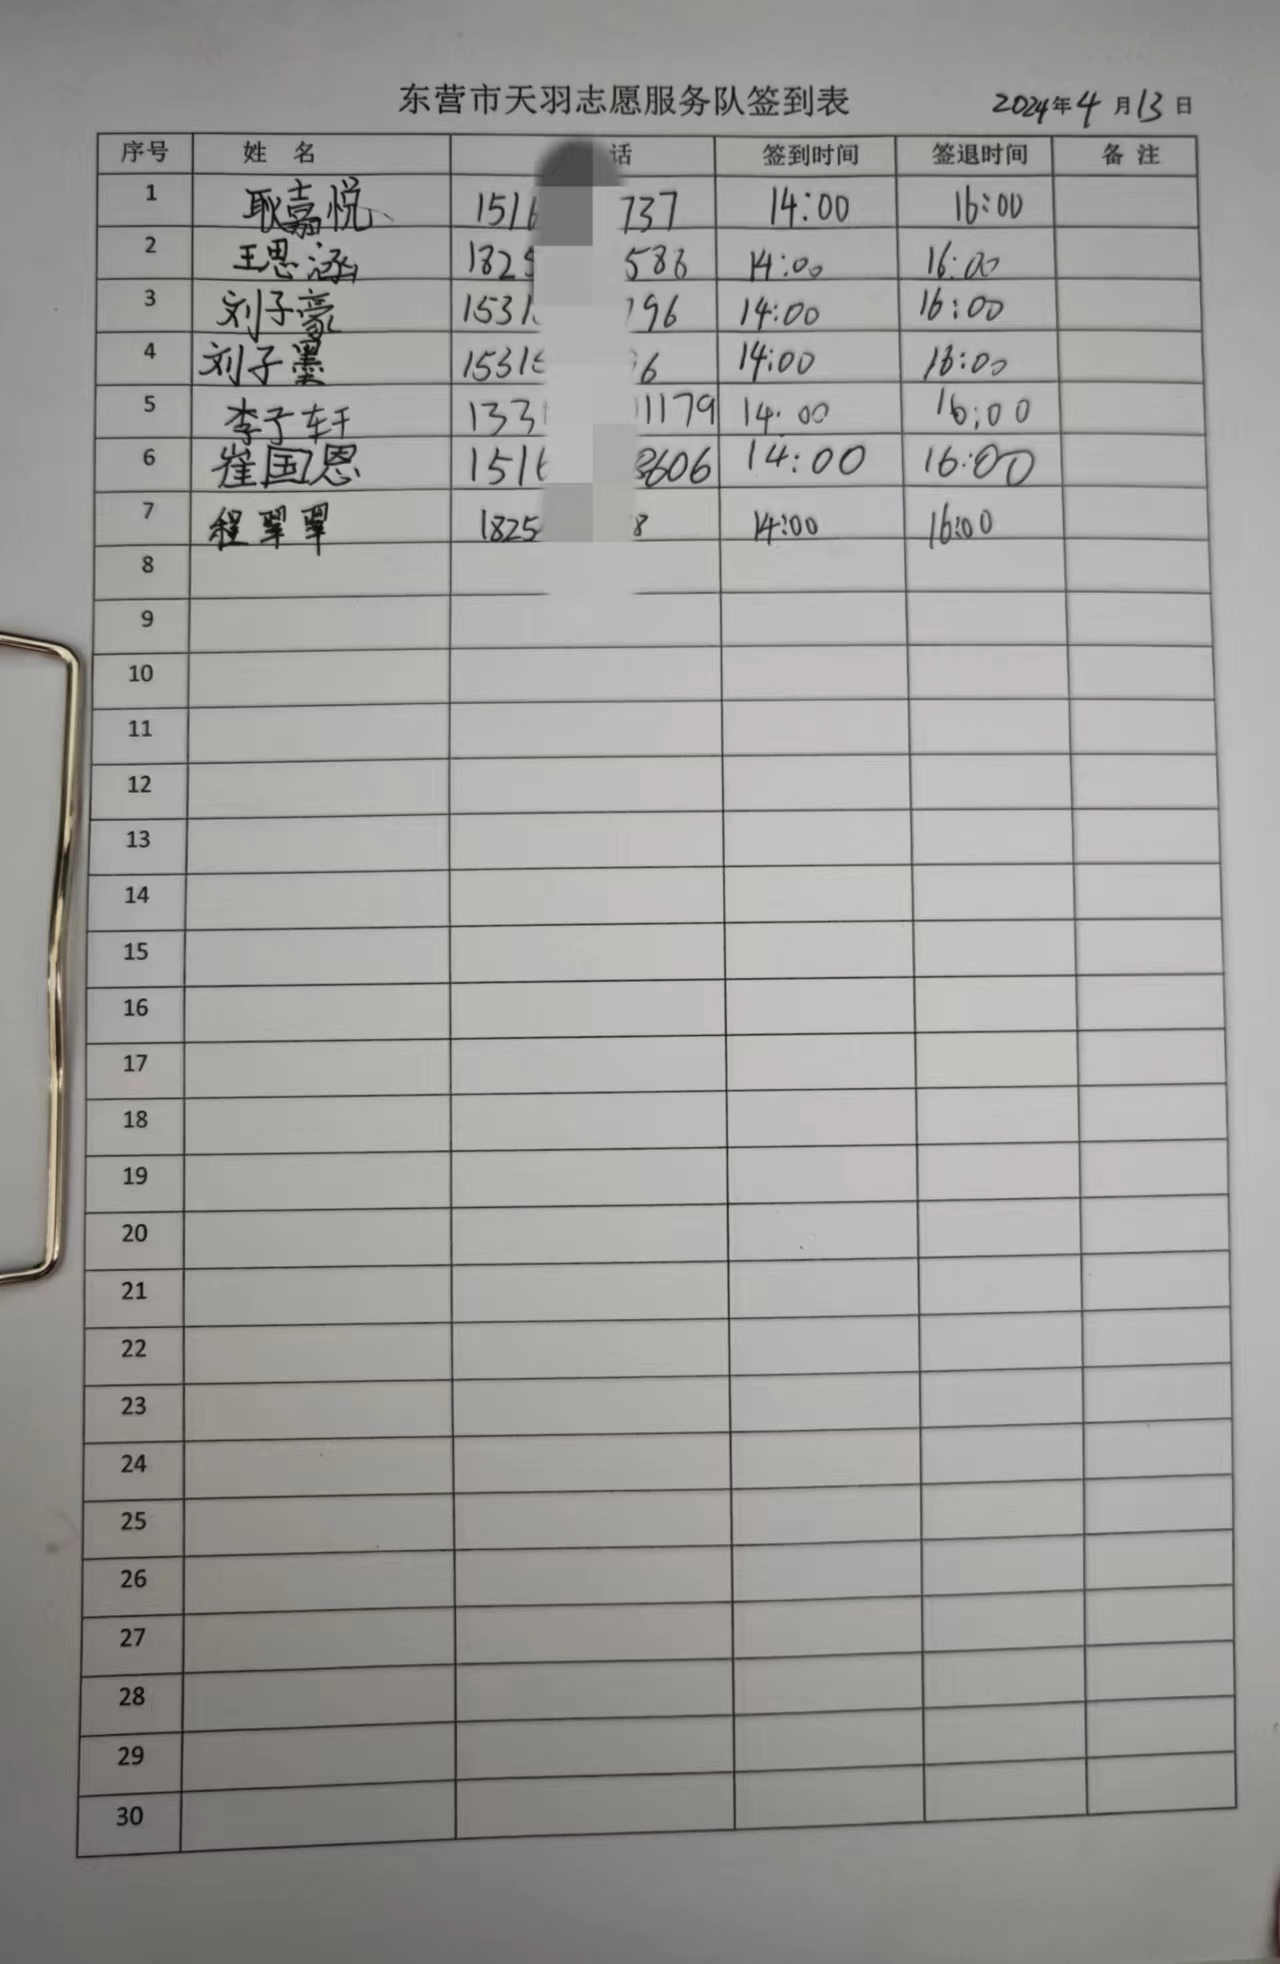 东营市天羽志愿服务队签到表 2024年4月13日
序号 姓 名 话 签到时间 签退时间 备 注
1 耿嘉悦 151 737 14:00 16:00
2 王思涵 1825 588 14:00 16:00
3 刘子豪 1531 196 14:00 16:00
4 刘子墨 1531 6 14:00 16:00
5 李子轩 133 1179 14:00 16:00
6 崔国恩 151 606 14:00 16:00
7 程翠翠 1825 8 14:00 16:00
8
9
10
11
12
13
14
15
16
17
18
19
20
21
22
23
24
25
26
27
28
29
30